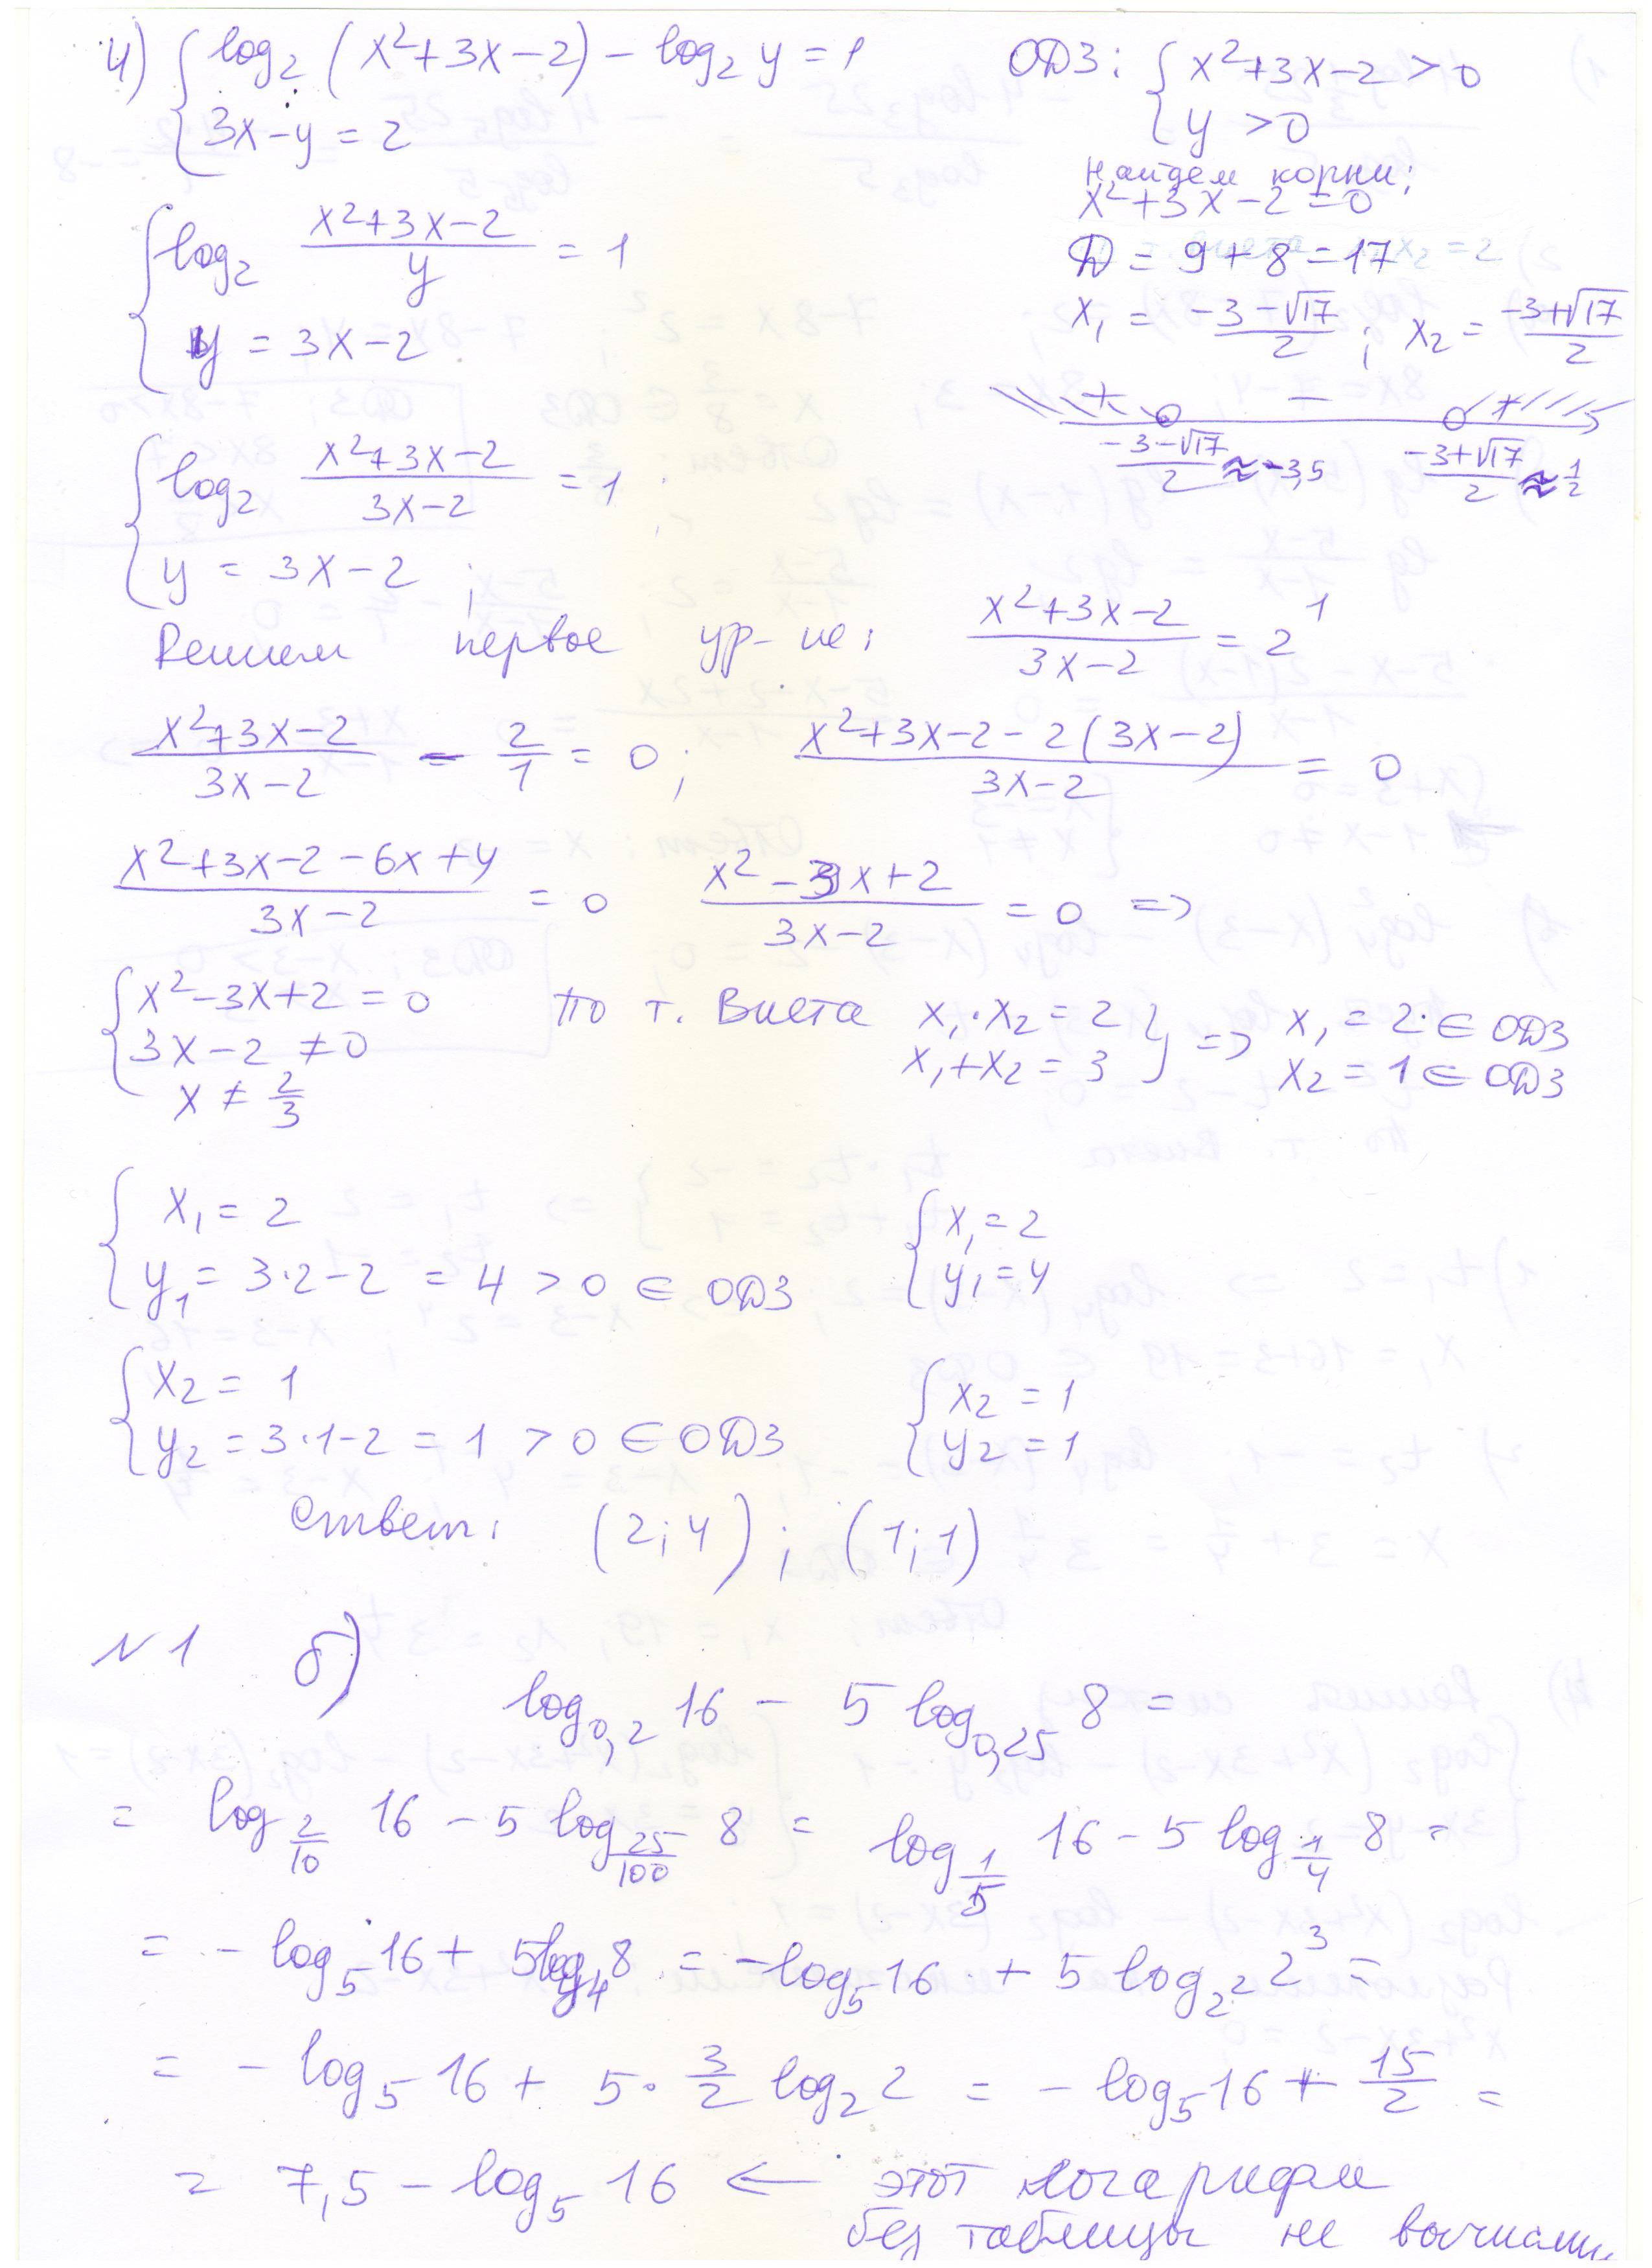 4) { log₂ (x²+3x−2) − log₂ y = 1
3x−y = 2
ОДЗ: { x²+3x−2 > 0
y > 0
найдем корни:
x²+3x−2=0
D = 9+8=17
x₁ = (−3−√17)/2 ; x₂ = (−3+√17)/2
+ − +
(−3−√17)/2 ≈ −3,5 (−3+√17)/2 ≈ 1/2
{ log₂ (x²+3x−2)/y = 1
y = 3x−2
{ log₂ (x²+3x−2)/(3x−2) = 1
y = 3x−2 ;
Решим первое ур-ие: (x²+3x−2)/(3x−2) = 2¹
(x²+3x−2)/(3x−2) − 2/1 = 0; (x²+3x−2−2(3x−2))/(3x−2) = 0
(x²+3x−2−6x+4)/(3x−2) = 0 (x²−3x+2)/(3x−2) = 0 =>
{ x²−3x+2 = 0
3x−2 ≠ 0
x ≠ 2/3
по т. Виета x₁·x₂ = 2
x₁+x₂ = 3 } => x₁ = 2 ∈ ОДЗ
x₂ = 1 ∈ ОДЗ
{ x₁ = 2
y₁ = 3·2−2 = 4 > 0 ∈ ОДЗ
{ x₁ = 2
y₁ = 4
{ x₂ = 1
y₂ = 3·1−2 = 1 > 0 ∈ ОДЗ
{ x₂ = 1
y₂ = 1
Ответ: (2;4) ; (1;1)
N1 б)
log₀,₂ 16 − 5 log₀,₂₅ 8 =
= log_(2/10) 16 − 5 log_(25/100) 8 = log_(1/5) 16 − 5 log_(1/4) 8 =
= − log₅ 16 + 5 log₄ 8 = −log₅ 16 + 5 log_(2²) 2³ =
= − log₅ 16 + 5· 3/2 log₂ 2 = − log₅ 16 + 15/2 =
= 7,5 − log₅ 16 ← этот логарифм
без таблицы не